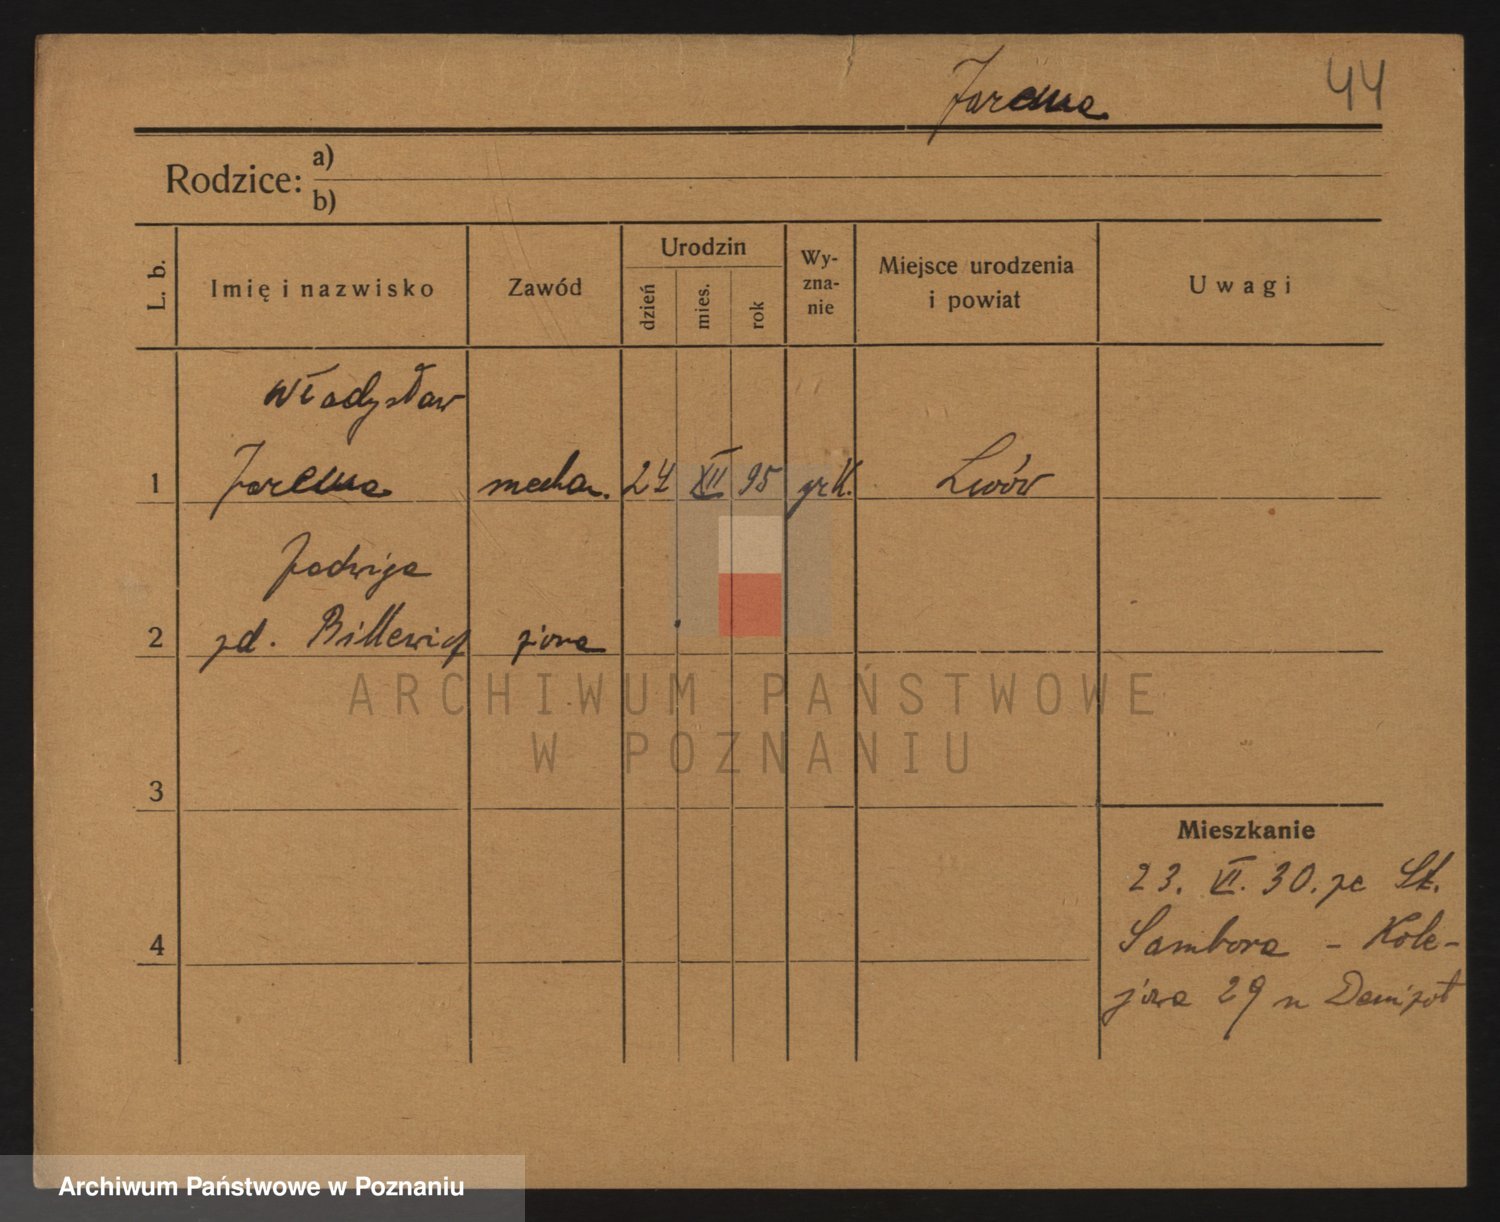 Jarema 44
Rodzice: a)
b)
L. b. Imię i nazwisko Zawód Urodzin dzień mies. rok Wy-zna-nie Miejsce urodzenia i powiat Uwagi
Władysław
1 Jarema mechan. 24 XII 95 gr K. Lwów
Jadwiga
2 zd. Billewicz żona
3
4
Mieszkanie
23. VI. 30. ze St.
Sambora - Kole-
jowa 29
ARCHIWUM PAŃSTWOWE
W POZNANIU
Archiwum Państwowe w Poznaniu